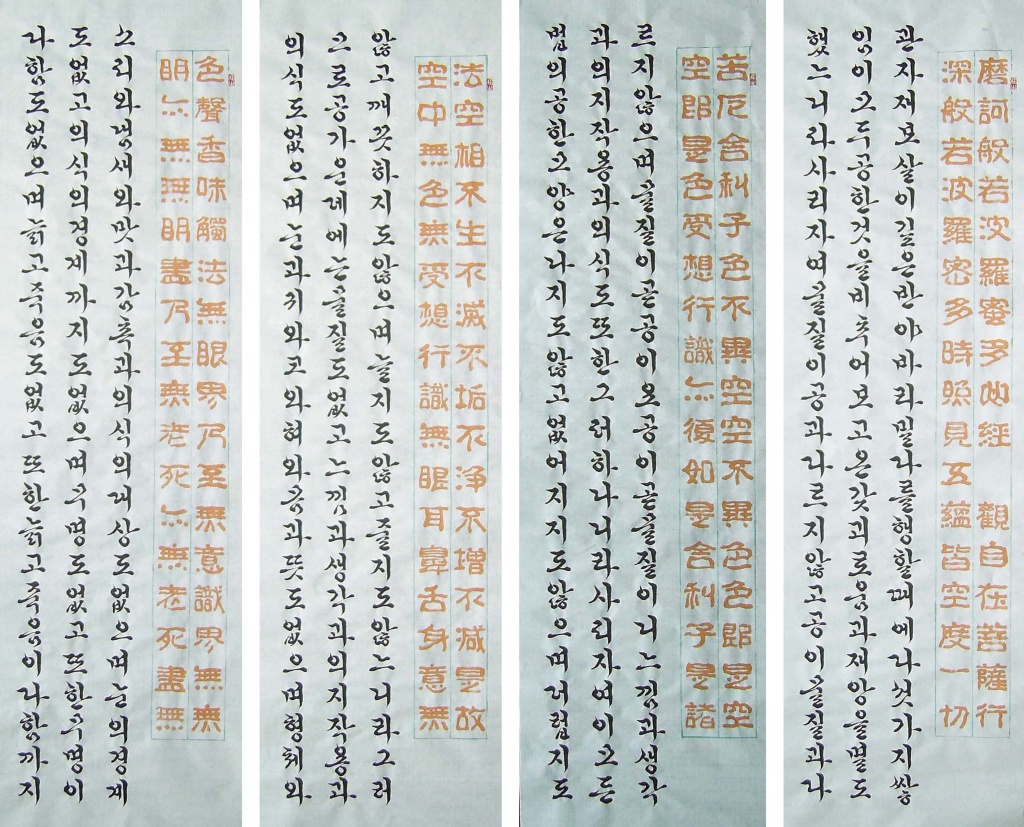 磨訶般若波羅蜜多心經 觀自在菩薩行
深般若波羅密多時照見五蘊皆空度一切
관자재보살이깊은반야바라밀다를행할때에다섯가지쌓
임이모두공한것을비추어보고온갖괴로움과재앙을멸도
했느니라사리자여물질이공과다르지않고공이물질과다
苦厄舍利子色不異空空不異色色卽是空
空卽是色受想行識亦復如是舍利子是諸
르지않으며물질이곧공이요공이곧물질이니느낌과생각
과의지작용과의식도또한그러하니라사리자여이모든
법의공한모양은나지도않고없어지지도않으며더럽지도
法空相不生不滅不垢不淨不增不減是故
空中無色無受想行識無眼耳鼻舌身意無
않고깨끗하지도않으며늘지도않고줄지도않느니라그러
므로공가운데에는물질도없고느낌과생각과의지작용과
의식도없으며눈과귀와코와혀와몸과뜻도없으며형체와
色聲香味觸法無眼界乃至無意識界無無
明亦無無明盡乃至無老死亦無老死盡無
소리와냄새와맛과감촉과의식의대상도없으며눈의경계
도없고의식의경계까지도없으며무명도없고또한무명이
다함도없으며늙고죽음도없고또한늙고죽음이다함까지